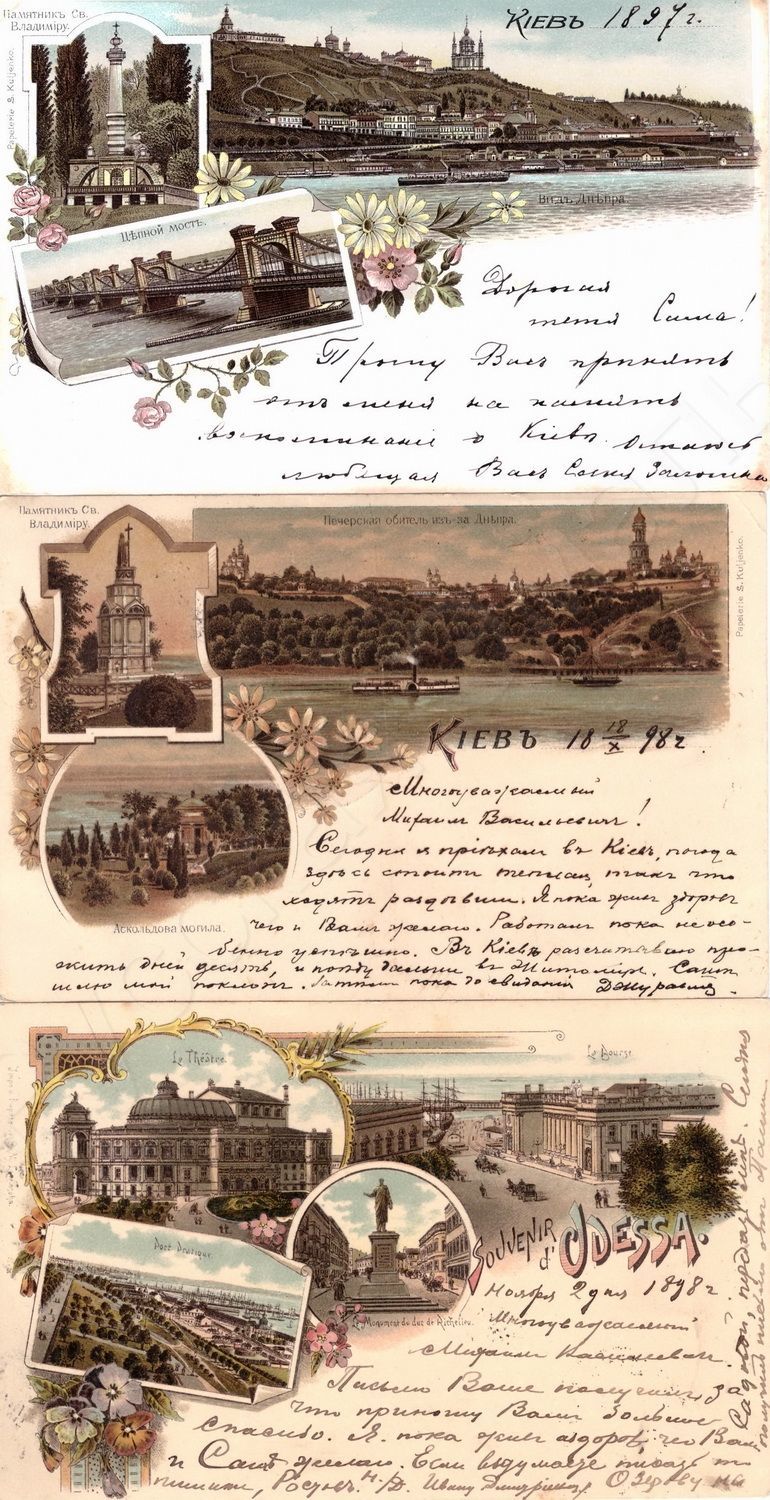 Памятникъ Св.
Владиміру.
Papeterie S. Kuljenko.
КІЕВЪ 1897 г.
Видъ Днѣпра.
Цѣпной мостъ.
Дорогая
тетя Саша!
Прошу Васъ принять
отъ меня на память
воспоминаніе о Кіевѣ. Остаюсь
любящая Васъ Соня
Памятникъ Св.
Владиміру.
Печерская обитель изъ-за Днѣпра.
Papeterie S. Kuljenko.
КІЕВЪ 18 18/X 98 г.
Аскольдова могила.
Многоуважаемый
Михаилъ Васильевичъ!
Сегодня я пріѣхалъ въ Кіевъ, погода
здѣсь стоитъ теплая такъ что
ходятъ раздѣвши. Я пока живъ здоровъ
чего и Вамъ желаю. Работаю пока не осо-
бенно успѣшно. Въ Кіевѣ разсчитываю про-
жить дней десять, и поѣду дальше въ Житоміръ.
шлю мой поклонъ. Затѣмъ пока до свиданія
Le Théâtre.
La Bourse
Port Pratique.
Le Monument du duc de Richelieu.
SOUVENIR
d'ODESSA.
Ноября 2 дня 1898 г.
Многоуважаемый
Михаилъ
Письмо Ваше получилъ, за
что приношу Вамъ большое
спасибо. Я пока живъ здоровъ, чего Вамъ
и желаю. Если вздумаете писать то
пишите, Ростовъ н/Д. Ивану Дмитріевичу Озерову на